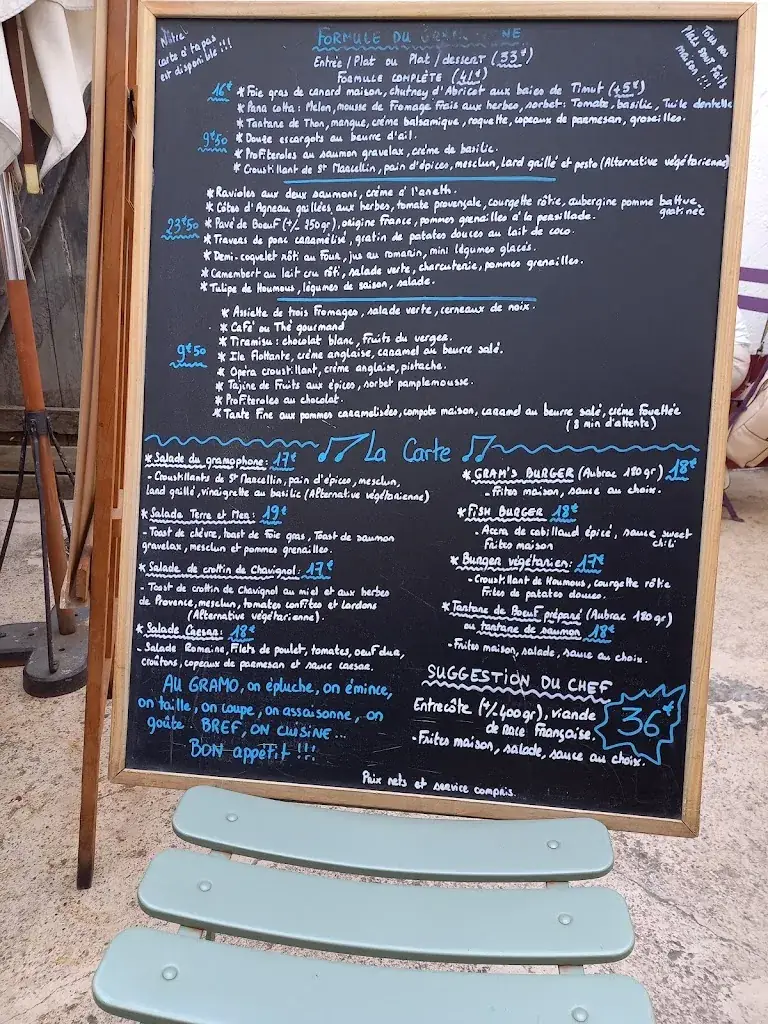 Notre
carte à tapas
est disponible !!!
Tous nos
Plats sont faits
maison !!!
FORMULE DU
Entrée / Plat ou Plat / dessert (33€)
FORMULE COMPLÈTE (41€)
16€ * Foie gras de canard maison, chutney d'Abricot aux baies de Timut (+5€)
* Pana cotta : Melon, mousse de Fromage Frais aux herbes, sorbet : Tomate, basilic, Tuile dentelle
* Tartare de Thon, mangue, crème balsamique, roquette, copeaux de parmesan, groseilles.
9€50 * Douze escargots au beurre d'ail.
* Profiteroles au saumon gravelax, crème de basilic.
* Croustillant de St Marcellin, pain d'épices, mesclun, lard grillé et pesto (Alternative végétarienne)
* Ravioles aux deux saumons, crème à l'aneth.
* Côtes d'Agneau grillées aux herbes, tomate provençale, courgette rôtie, aubergine pomme battue gratinée
23€50 * Pavé de Boeuf (+/- 250gr), origine France, pommes grenailles à la persillade.
* Travers de porc caramélisé, gratin de patates douces au lait de coco.
* Demi-coquelet rôti au Four, jus au romarin, mini légumes glacés.
* Camembert au lait cru rôti, salade verte, charcuterie, pommes grenailles.
* Tulipe de Houmous, légumes de saison, salade.
* Assiette de trois Fromages, salade verte, cerneaux de noix.
* Café ou Thé gourmand
* Tiramisu : chocolat blanc, Fruits du verger.
9€50 * Ile Flottante, crème anglaise, caramel au beurre salé.
* Opéra croustillant, crème anglaise, pistache.
* Tajine de Fruits aux épices, sorbet pamplemousse.
* Profiteroles au chocolat.
* Tarte Fine aux pommes caramélisées, compote maison, caramel au beurre salé, crème Fouettée
(8 min d'attente)
La Carte
* Salade du gramophone : 17€
- Croustillants de St Marcellin, pain d'épices, mesclun,
lard grillé, vinaigrette au basilic (Alternative végétarienne)
* Salade Terre et Mer : 19€
- Toast de chèvre, toast de Foie gras, Toast de saumon
gravelax, mesclun et pommes grenailles.
* Salade de crottin de Chavignol : 17€
- Toast de crottin de Chavignol au miel et aux herbes
de Provence, mesclun, tomates confites et lardons
(Alternative végétarienne).
* Salade Caesar : 18€
- Salade Romaine, Filets de poulet, tomates, oeuf dur,
croûtons, copeaux de parmesan et sauce caesar.
AU GRAMO, on épluche, on émince,
on taille, on coupe, on assaisonne, on
goûte. BREF, ON CUISINE...
BON appétit !!!
* GRAM'S BURGER (Aubrac 180gr) 18€
- Frites maison, sauce au choix.
* FISH BURGER 18€
- Accra de cabillaud épicé, sauce sweet chili
Frites maison
* Burger végétarien : 17€
- Croustillant de Houmous, courgette rôtie
Frites de patates douces.
* Tartare de Boeuf préparé (Aubrac 180gr)
ou tartare de saumon 18€
- Frites maison, salade, sauce au choix.
SUGGESTION DU CHEF
Entrecôte (+/- 400gr), viande
de race Française.
- Frites maison, salade, sauce au choix.
36€
Prix nets et service compris.